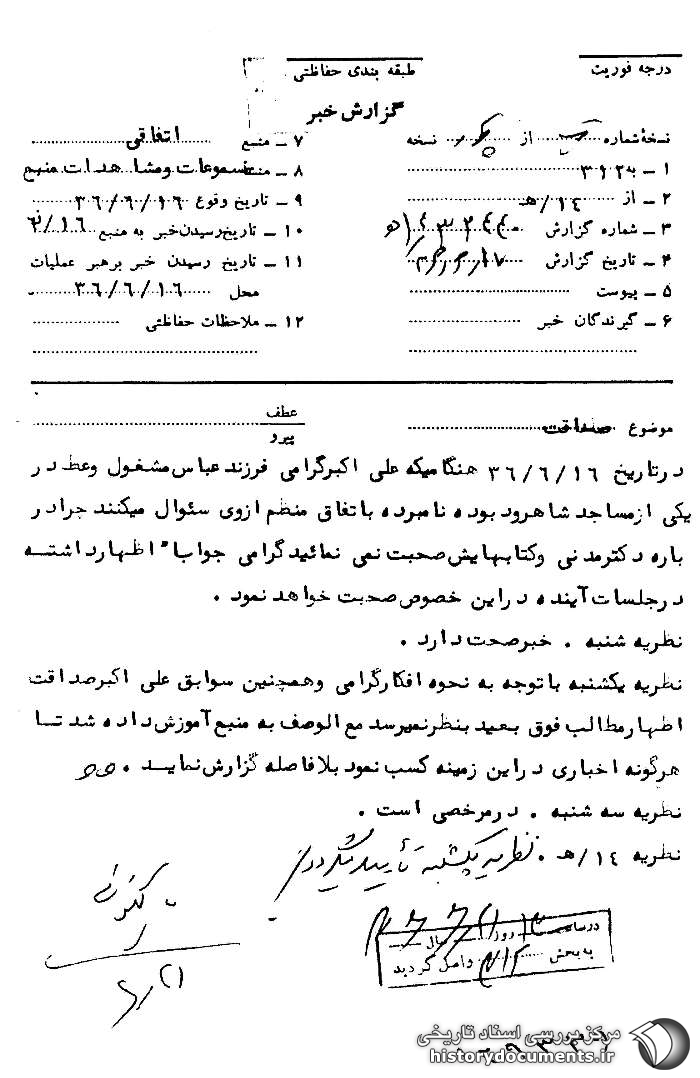 درجه فوریت
طبقه بندی حفاظتی
گزارش خبر
نسخهٔ شماره از نسخه
۱ ـ به ۳۱۲
۲ ـ از ۱۴/هـ
۳ ـ شماره گزارش
۴ ـ تاریخ گزارش
۵ ـ پیوست
۶ ـ گیرندگان خبر
۷ ـ منبع اتفاقی
۸ ـ مسموعات ومشاهدات منبع
۹ ـ تاریخ وقوع ۳۶/۶/۱۶
۱۰ ـ تاریخ رسیدن خبر به منبع
۱۱ ـ تاریخ رسیدن خبر برهبر عملیات
محل ۳۶/۶/۱۶
۱۲ ـ ملاحظات حفاظتی
موضوع صداقت
عطف
پیرو
درتاریخ ۳۶/۶/۱۶ هنگامیکه علی اکبرگرامی فرزند عباس مشغول وعظ در
یکی ازمساجد شاهرود بوده نامبرده باتفاق منظم ازوی سئوال میکنند چرا در
باره دکترمدنی وکتابهایش صحبت نمی نمائید گرامی جوابا" اظهارداشتــه
درجلسات آینده دراین خصوص صحبت خواهد نمود .
نظریه شنبه . خبرصحت دارد .
نظریه یکشنبه باتوجه به نحوه افکارگرامی وهمچنین سوابق علی اکبرصداقت
اظهارمطالب فوق بعید بنظرنمیرسد مع الوصف به منبع آموزش داده شد تــا
هرگونه اخباری دراین زمینه کسب نمود بلافاصله گزارش نمایــد .
نظریه سه شنبه . درمرخصی است .
نظریه ۱۴/هـ . نظریه یکشنبه تأیید میگردد
در ساعت روز سال
به بخش ۳۱۲ واصل گردید
مرکز بررسی اسناد تاریخی
historydocuments.ir